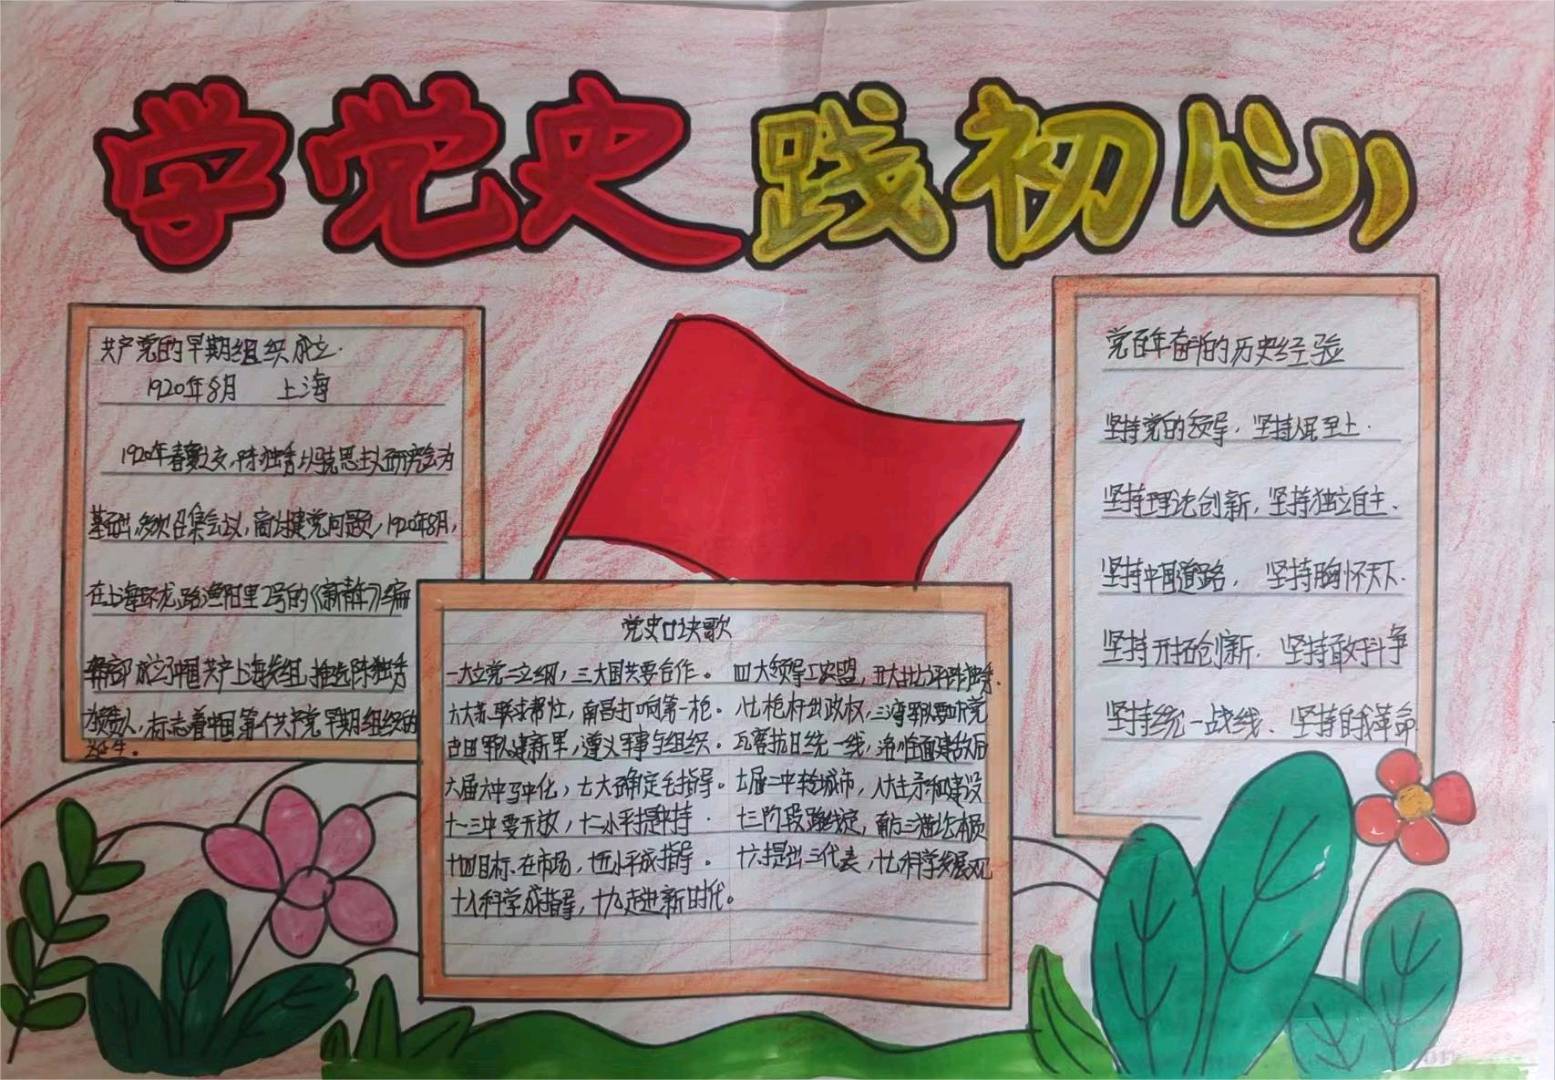 学党史 践初心
共产党的早期组织成立.
1920年8月 上海
1920年春夏之交,陈独秀以马克思主义研究会为
基础,多次召集会议,商讨建党问题,1920年8月,
在上海环龙路渔阳里2号的《新青年》编
辑部成立中国共产上海发组,推选陈独秀
为负责人,标志着中国第一个共产党早期组织的
诞生.
党史口诀歌
一大立党二立纲,三大国共要合作。 四大领导工农盟,五大
六大苏联求帮忙,南昌打响第一枪。 八七枪杆出政权,三湾军队要听党
古田军队建新军,遵义军事与组织。 瓦窑抗日统一线,洛川全面建敌后
六届六中马中化,七大确定毛指导。 七届二中转城市,八大主矛和建设
十一三中要开放,十二小平提中特. 十三阶段路线定,南方三猫论本质
十四目标.在市场,十五小平成指导。 十六提出三代表,十七科学发展观
十八科学成指导,十九走进新时代。
党百年奋斗的历史经验
坚持党的领导,坚持人民至上.
坚持理论创新,坚持独立自主、
坚持中国道路, 坚持胸怀天下.
坚持开拓创新. 坚持敢于斗争
坚持统一战线、坚持自我革命